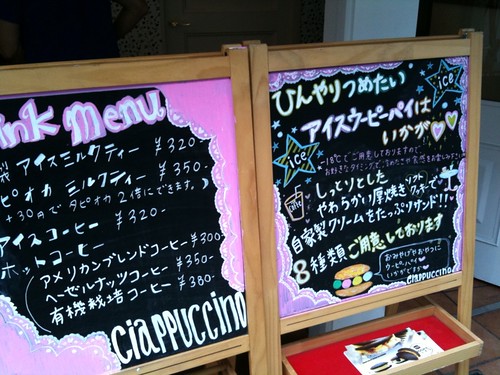 ink Menu
アイスミルクティー ¥320
ピオカ ミルクティー ¥350
+30円で タピオカ 2倍にできます。
アイスコーヒー ¥320
ホットコーヒー
アメリカンブレンドコーヒー ¥300
ヘーゼルナッツコーヒー ¥350
有機栽培コーヒー ¥380
ciappuccino
ひんやりつめたい
ice
アイスウーピーパイは
いかが
ice
-18℃でご用意しておりますので、
しっとりとした
やわらかい厚焼きソフトクッキーで
自家製クリームをたっぷりサンド!!
8種類ご用意しております
おみやげやおやつに
ウーピーパイ
いかがですか
ciappuccino